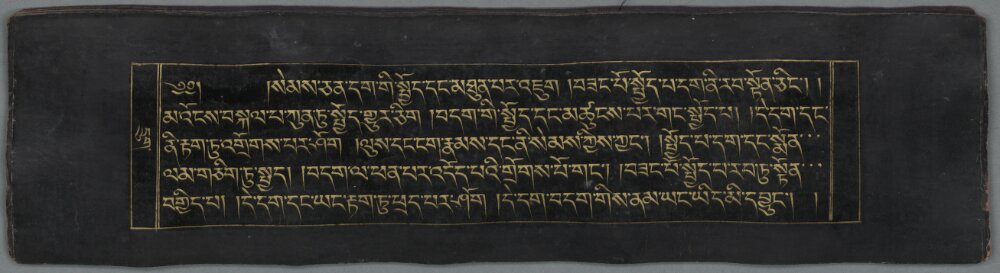 ༄༅། །སེམས་ཅན་དག་གི་སྤྱོད་དང་མཐུན་པར་འཇུག །བཟང་པོ་སྤྱོད་པ་དག་ནི་རབ་སྟོན་ཅིང་། །
མ་འོངས་བསྐལ་པ་ཀུན་ཏུ་སྤྱོད་གྱུར་ཅིག །བདག་གི་སྤྱོད་དང་མཚུངས་པར་གང་སྤྱོད་པ། །དེ་དག་དང་
ནི་རྟག་ཏུ་འགྲོགས་པར་ཤོག །ལུས་དང་ངག་རྣམས་དང་ནི་སེམས་ཀྱིས་ཀྱང་། །སྤྱོད་པ་དག་དང་སྨོན་
ལམ་གཅིག་ཏུ་སྤྱད། །བདག་ལ་ཕན་པར་འདོད་པའི་གྲོགས་པོ་གང་། །བཟང་པོ་སྤྱོད་པ་རབ་ཏུ་སྟོན་
བགྱིད་པ། །དེ་དག་དང་ཡང་རྟག་ཏུ་ཕྲད་པར་ཤོག །དེ་དག་བདག་གིས་ནམ་ཡང་ཡིད་མི་དབྱུང་། །